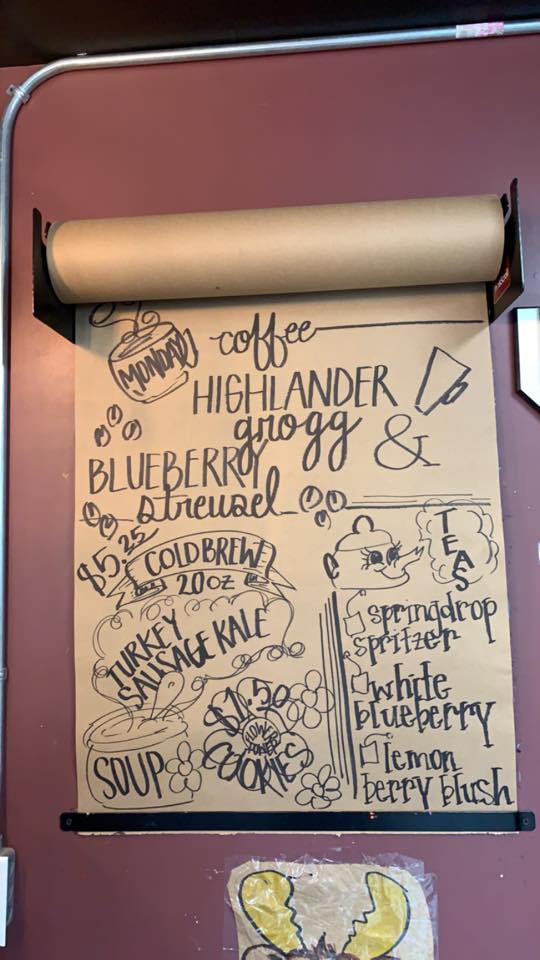 MONDAY
coffee
HIGHLANDER
grogg &
BLUEBERRY
streusel
$5.25
COLD BREW
20oz
TURKEY
SAUSAGE KALE
SOUP
$1.50
FLOWER
POWER
COOKIES
TEAS
springdrop
spritzer
white
blueberry
lemon
berry blush